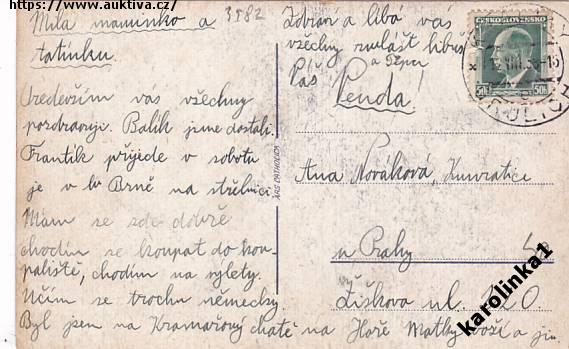 https://www.auktiva.cz/
Milá maminko a
tatínku.
3582
Uredevším vás všechny
pozdravuji. Balík jsme dostali.
Frantík přijede v sobotu
je v Brně na střelnici
Mám se zde dobře
chodím se koupat do kou-
paliště, chodím na výlety.
Učím se trochu německy
Byl jsem na Kramářový chatě na Hoře Matky Boží a
Zdraví a líbá vás
všechny zvlášť Libuš
a
Váš
Penda!
ČESKOSLOVENSKO
50h 50h
KRÁLÍKY
ARS CATHOLICA
Ana Nováková, Kunratice
u Prahy
Žižkova ul.
karolinka1